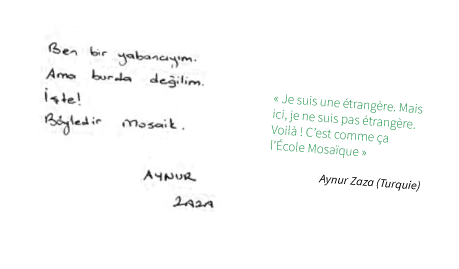 Ben bir yabancıyım.
Ama burda değilim.
İşte!
Böyledir mosaik.
AYNUR
ZAZA
« Je suis une étrangère. Mais
ici, je ne suis pas étrangère.
Voilà ! C’est comme ça
l’École Mosaïque »
Aynur Zaza (Turquie)